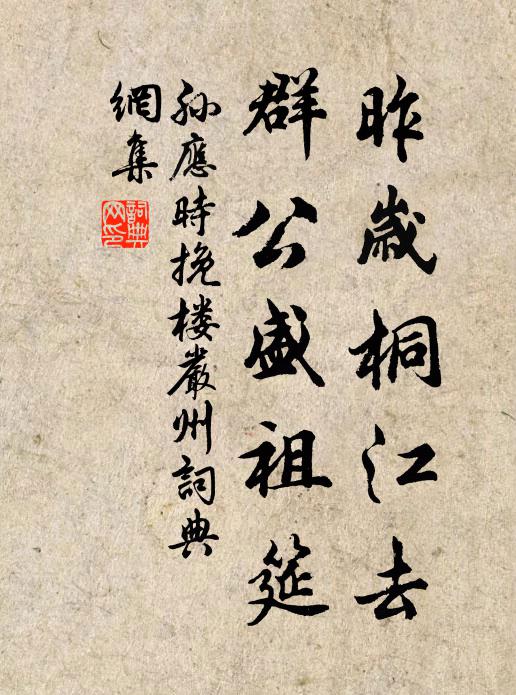 昨歲桐江去
群公盛祖筵
孫應時挽楼嚴州詞典
網集
詞典網印